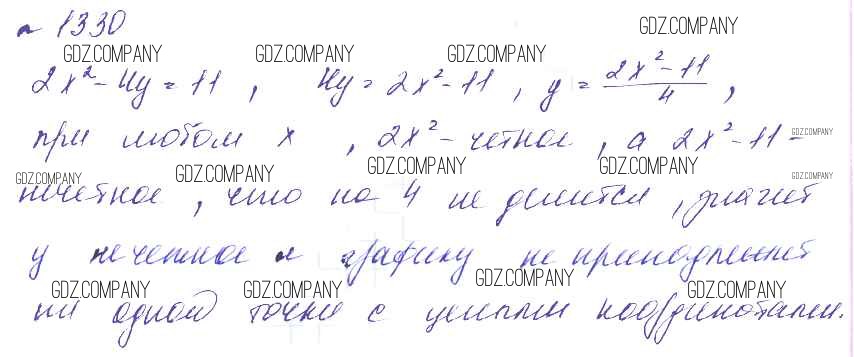 № 1330
GDZ.COMPANY
GDZ.COMPANY GDZ.COMPANY GDZ.COMPANY
2x² - 4y = 11, 4y = 2x² - 11, y = (2x² - 11)/4,
при любом x, 2x² - четное, а 2x² - 11 -
GDZ.COMPANY
GDZ.COMPANY GDZ.COMPANY GDZ.COMPANY GDZ.COMPANY GDZ.COMPANY
нечетное, что на 4 не делится, значит
у нечетное и графику не принадлежит
GDZ.COMPANY GDZ.COMPANY GDZ.COMPANY GDZ.COMPANY
ни одной точки с целыми координатами.